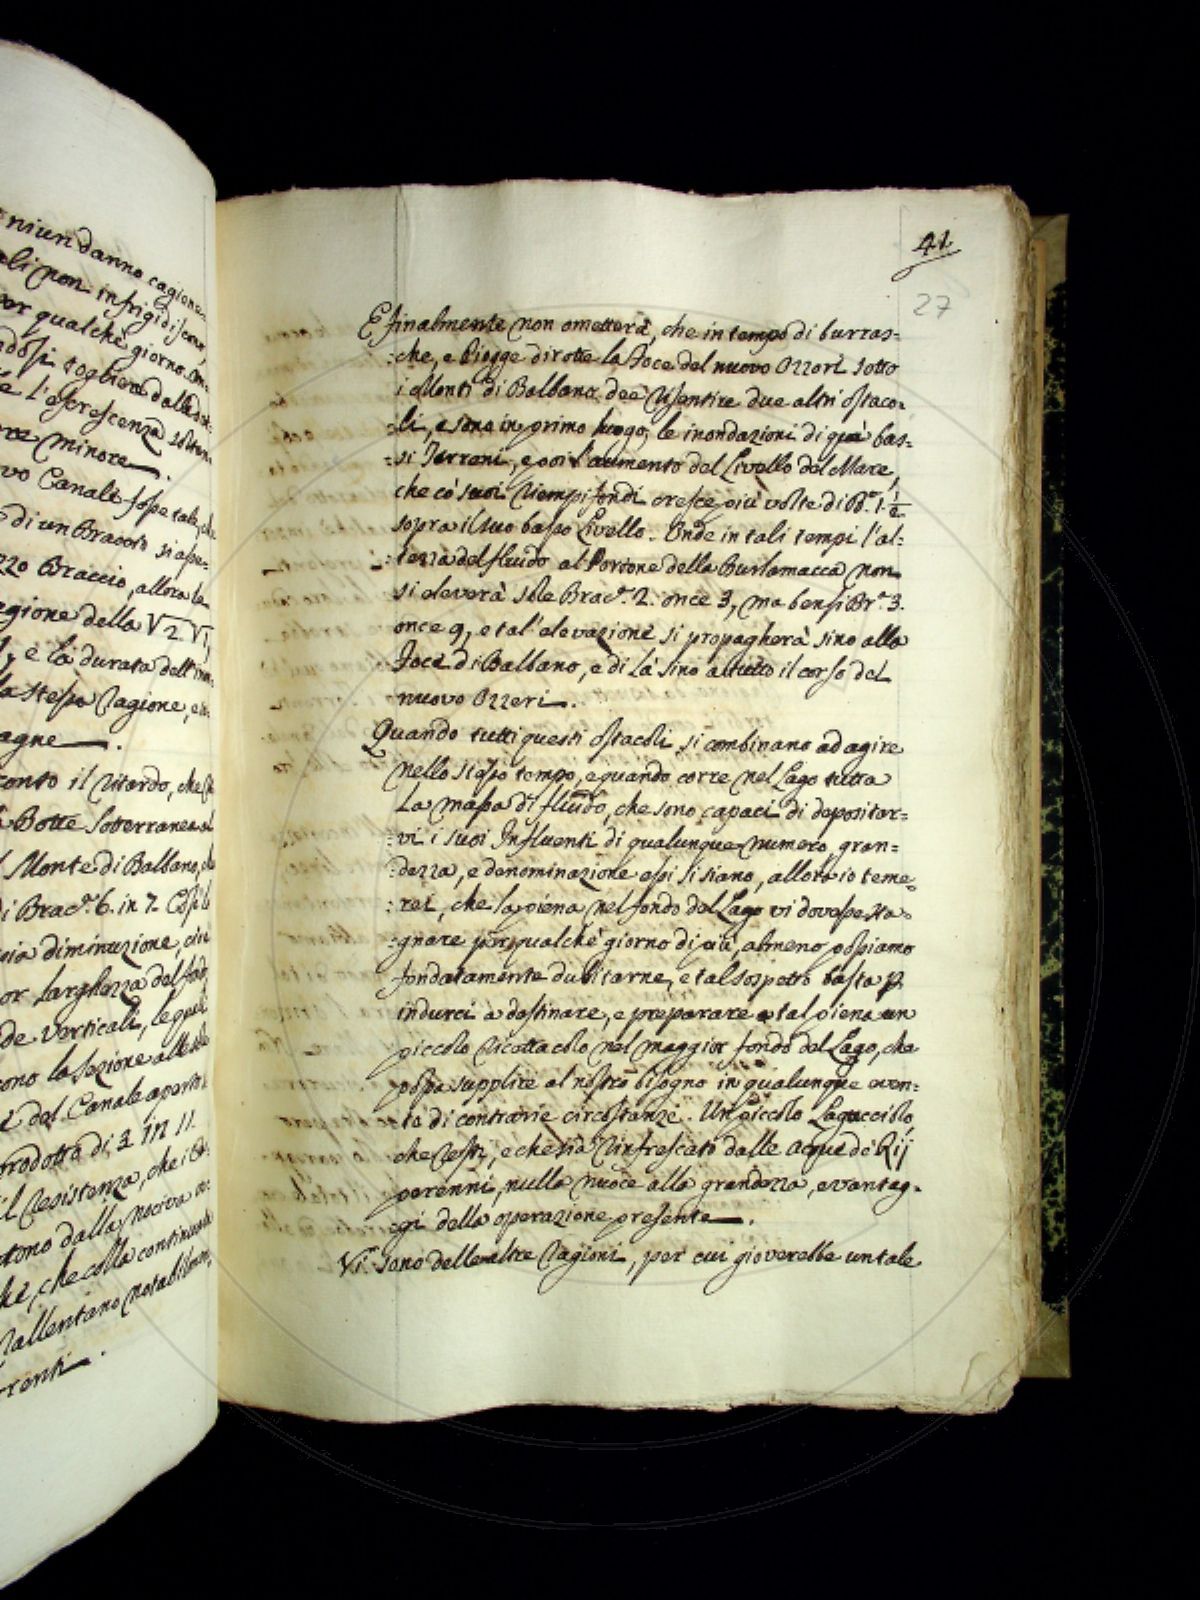 niun danno cagiona-
ali non infrigidiscono,
per qualche giorno. Om-
togliera dalla
e l'escrescenza
ore minore.
vo Canale fosse tale, che
di un Braccio si
zzo Braccio, allora le
agione della √2 √1,
, e la durata dell'
la stessa ragione, e
agne.
conto il ritardo, che
Botte Sotterranea
Monte di Balbano,
di Brac.ª 6. in 7. Così
diminuzione,
or larghezza del
de verticali, le quali
ono la sezione
del Canale aperto
prodotta di 3 in 11.
il resistenza, che
dalla nociva
che colla continuata
rallentano notabilmen
renti.
41
27
E finalmente non ometterà, che in tempo di burras-
:che, e Piogge dirotte la Foce del nuovo Ozzori sotto
i Monti di Balbano dee risentire due altri ostaco-
:li, e sono in primo luogo, le inondazioni di quei bas-
:si Terreni, e poi l'aumento del Livello del Mare,
che co' suoi riempifondi cresce più volte di B.ª 1 ½
sopra il suo basso Livello. Onde in tali tempi l'al-
:tezza del fluido al Portone della Burlamacca non
si eleverà sole Brac.ª 2. once 3, ma bensì Br.ª 3.
once 9, e tal' elevazione si propagherà sino alla
Foce di Balbano, e di là sino a tutto il corso del
nuovo Ozzeri.
Quando tutti questi ostacoli si combinano ad agire
nello stesso tempo, e quando corre nel Lago tutta
la massa di fluido, che sono capaci di depositar-
:vi i suoi Influenti di qualunque numero, gran-
:dezza, e denominazione essi si siano, allora io teme-
:rei, che la piena nel fondo del Lago vi dovesse sta-
:gnare per qualche giorno di più, almeno possiamo
fondatamente dubitarne, e tal sospetto basta p.
indurci a destinare, e preparare a tal piena un
piccolo ricettacolo nel maggior fondo del Lago, che
possa supplire al nostro bisogno in qualunque even-
:to di contrarie circostanze. Un piccolo Lagacciolo,
che resti, e che sia rinfrescato dalle acque de' Rij
perenni, nulla nuoce alla grandezza, e vantag-
:gi della operazione presente.
Vi sono delle altre ragioni, per cui gioverebbe un tale